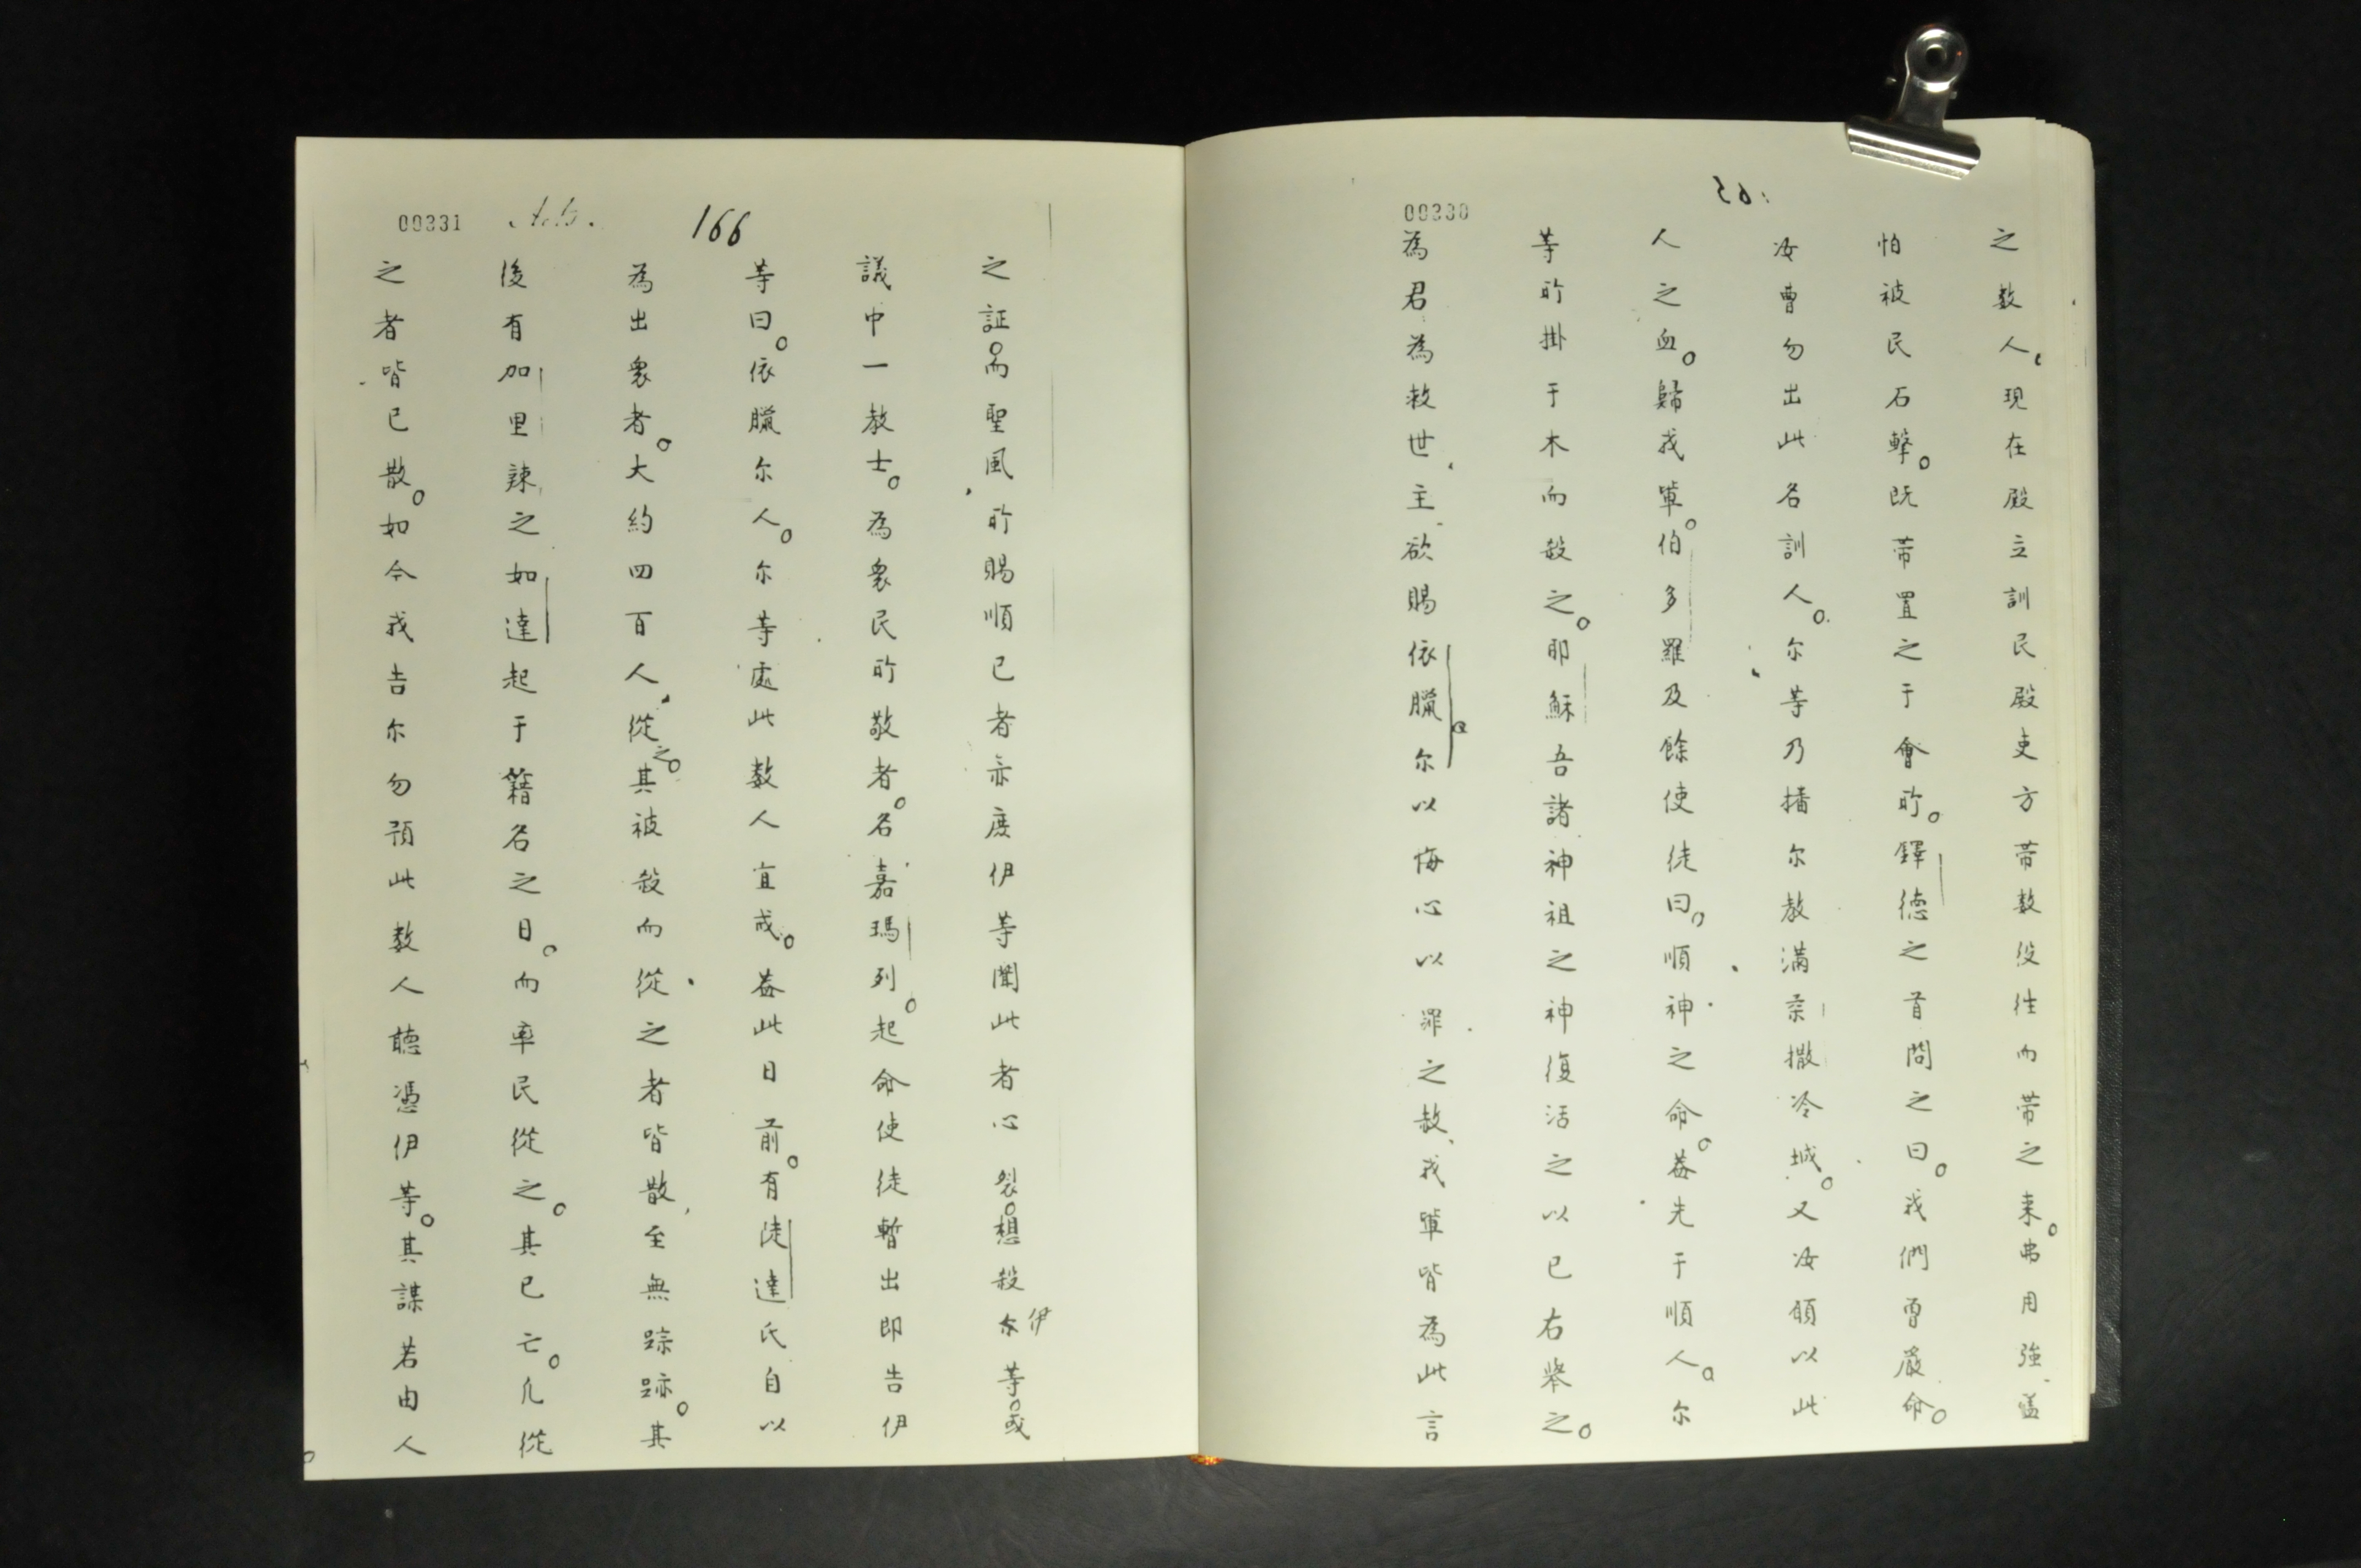 00330
之数人現在殿立訓民殿吏方帯数役徃而帯之来。弗用強盖
怕被民石擊。既帯置之于會所。鐸徳之首問之曰。我們曽嚴命。
汝曹勿出此名訓人。尔等乃播尔教滿柔撒冷城。又汝願以此
人之血。歸我軰。伯多羅及餘使徒曰。順神之命。葢先于順人。尔
等所掛于木而殺之。耶穌吾諸神祖之神復活之以已右舉之。
為君為救世主欲賜依臘尔以悔心以罪之赦、我軰皆為此言
00331 Acts. 166
之証。而聖風所賜順已者亦度伊等聞此者心裂。想殺伊等。或
議中一教士。為衆民所敬者。名嘉瑪列。起命使徒暫出即告伊
等曰。依臘尔人。尔等處此数人宜戒。葢此日前。有徒達氏自以
為出衆者。大約四百人從之。其被殺而從之者皆散至無踪跡。其
後有加里辣之如達起于籍名之日。而率民從之。其已亡。凢從
之者皆已散。如今我告尔勿預此数人聽憑伊等。其謀若由人